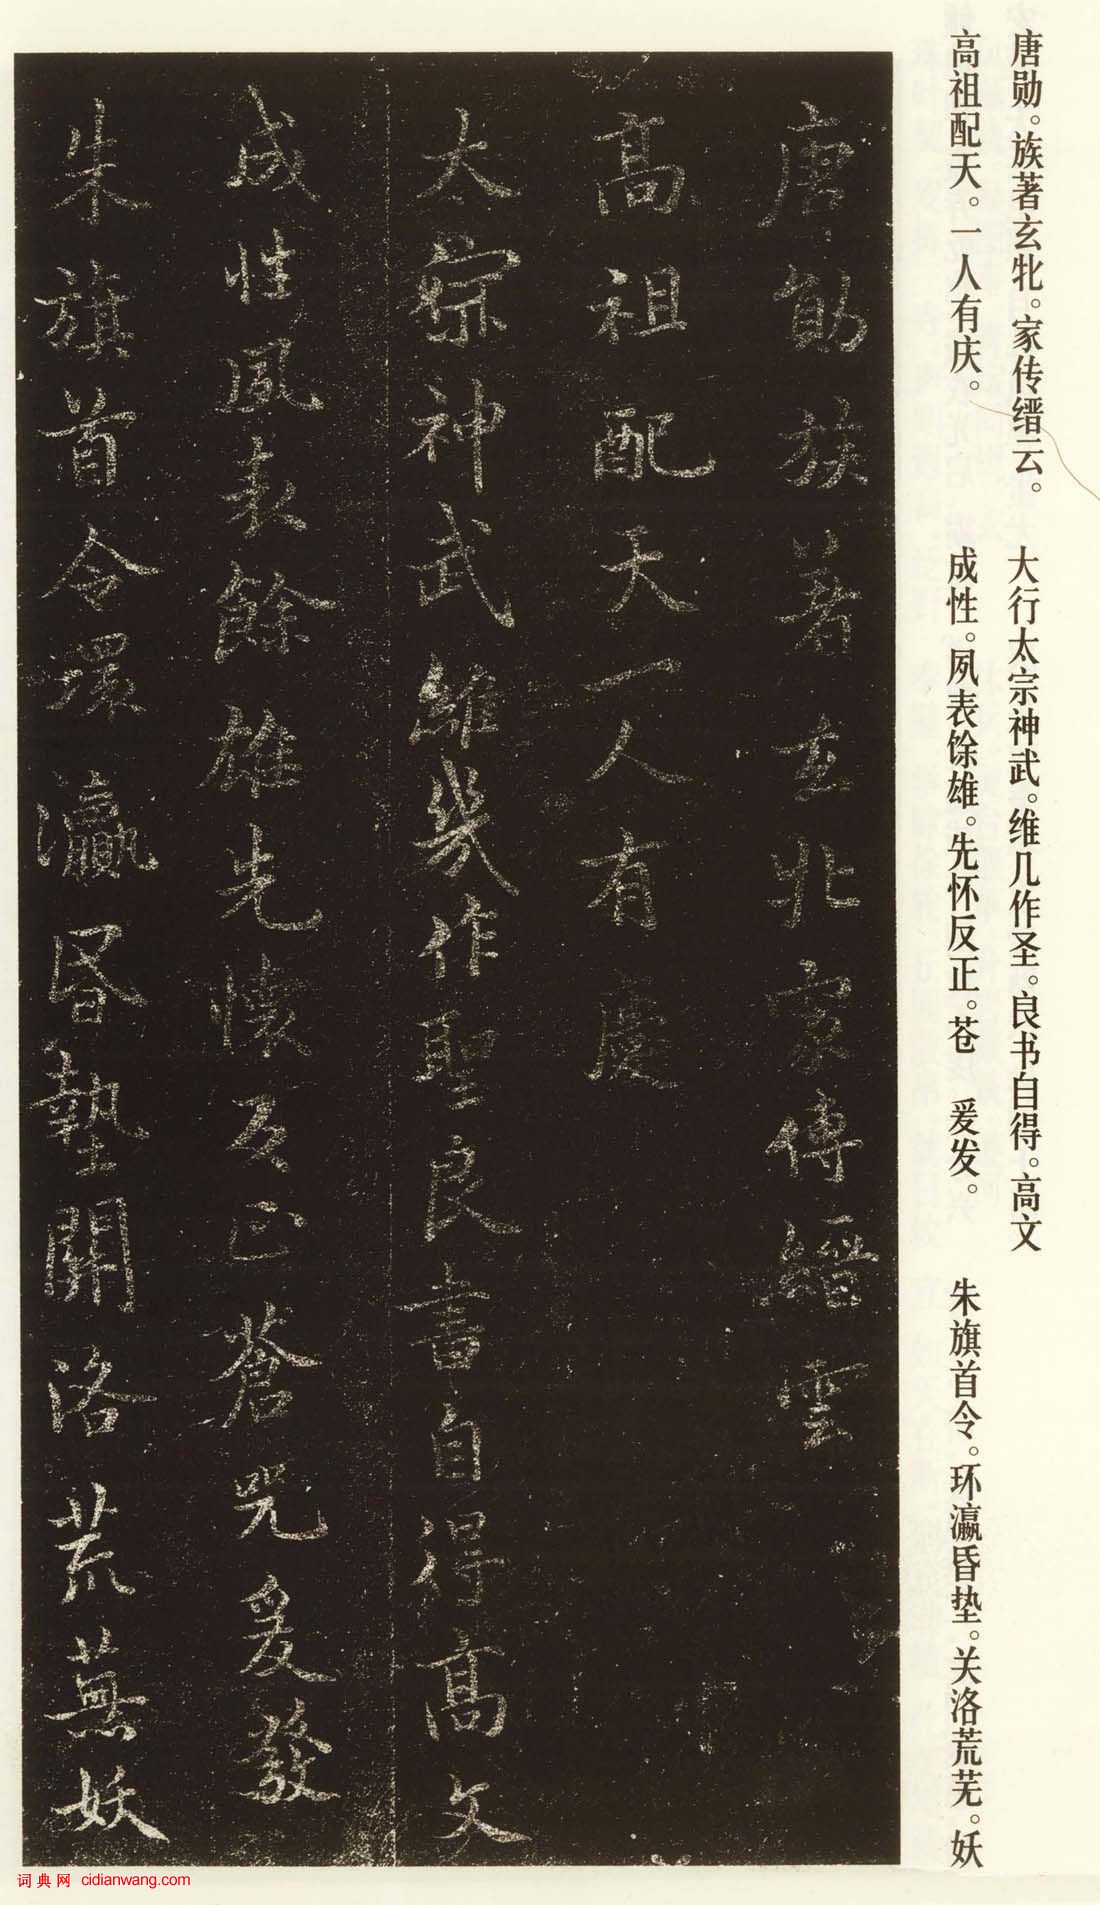 唐勋。族著玄牝。家传缙云。
高祖配天。一人有庆。
大行太宗神武。维几作圣。良书自得。高文
成性。夙表馀雄。先怀反正。苍 爰发。
朱旗首令。环瀛昏垫。关洛荒芜。妖
唐勛族著玄牝家傳縉雲
高祖配天一人有慶
太宗神武維幾作聖良書自得高文
成性夙表餘雄先懷反正蒼咒爰發
朱旗首令環瀛昬墊關洛荒蕪妖
词典网 cidianwang.com